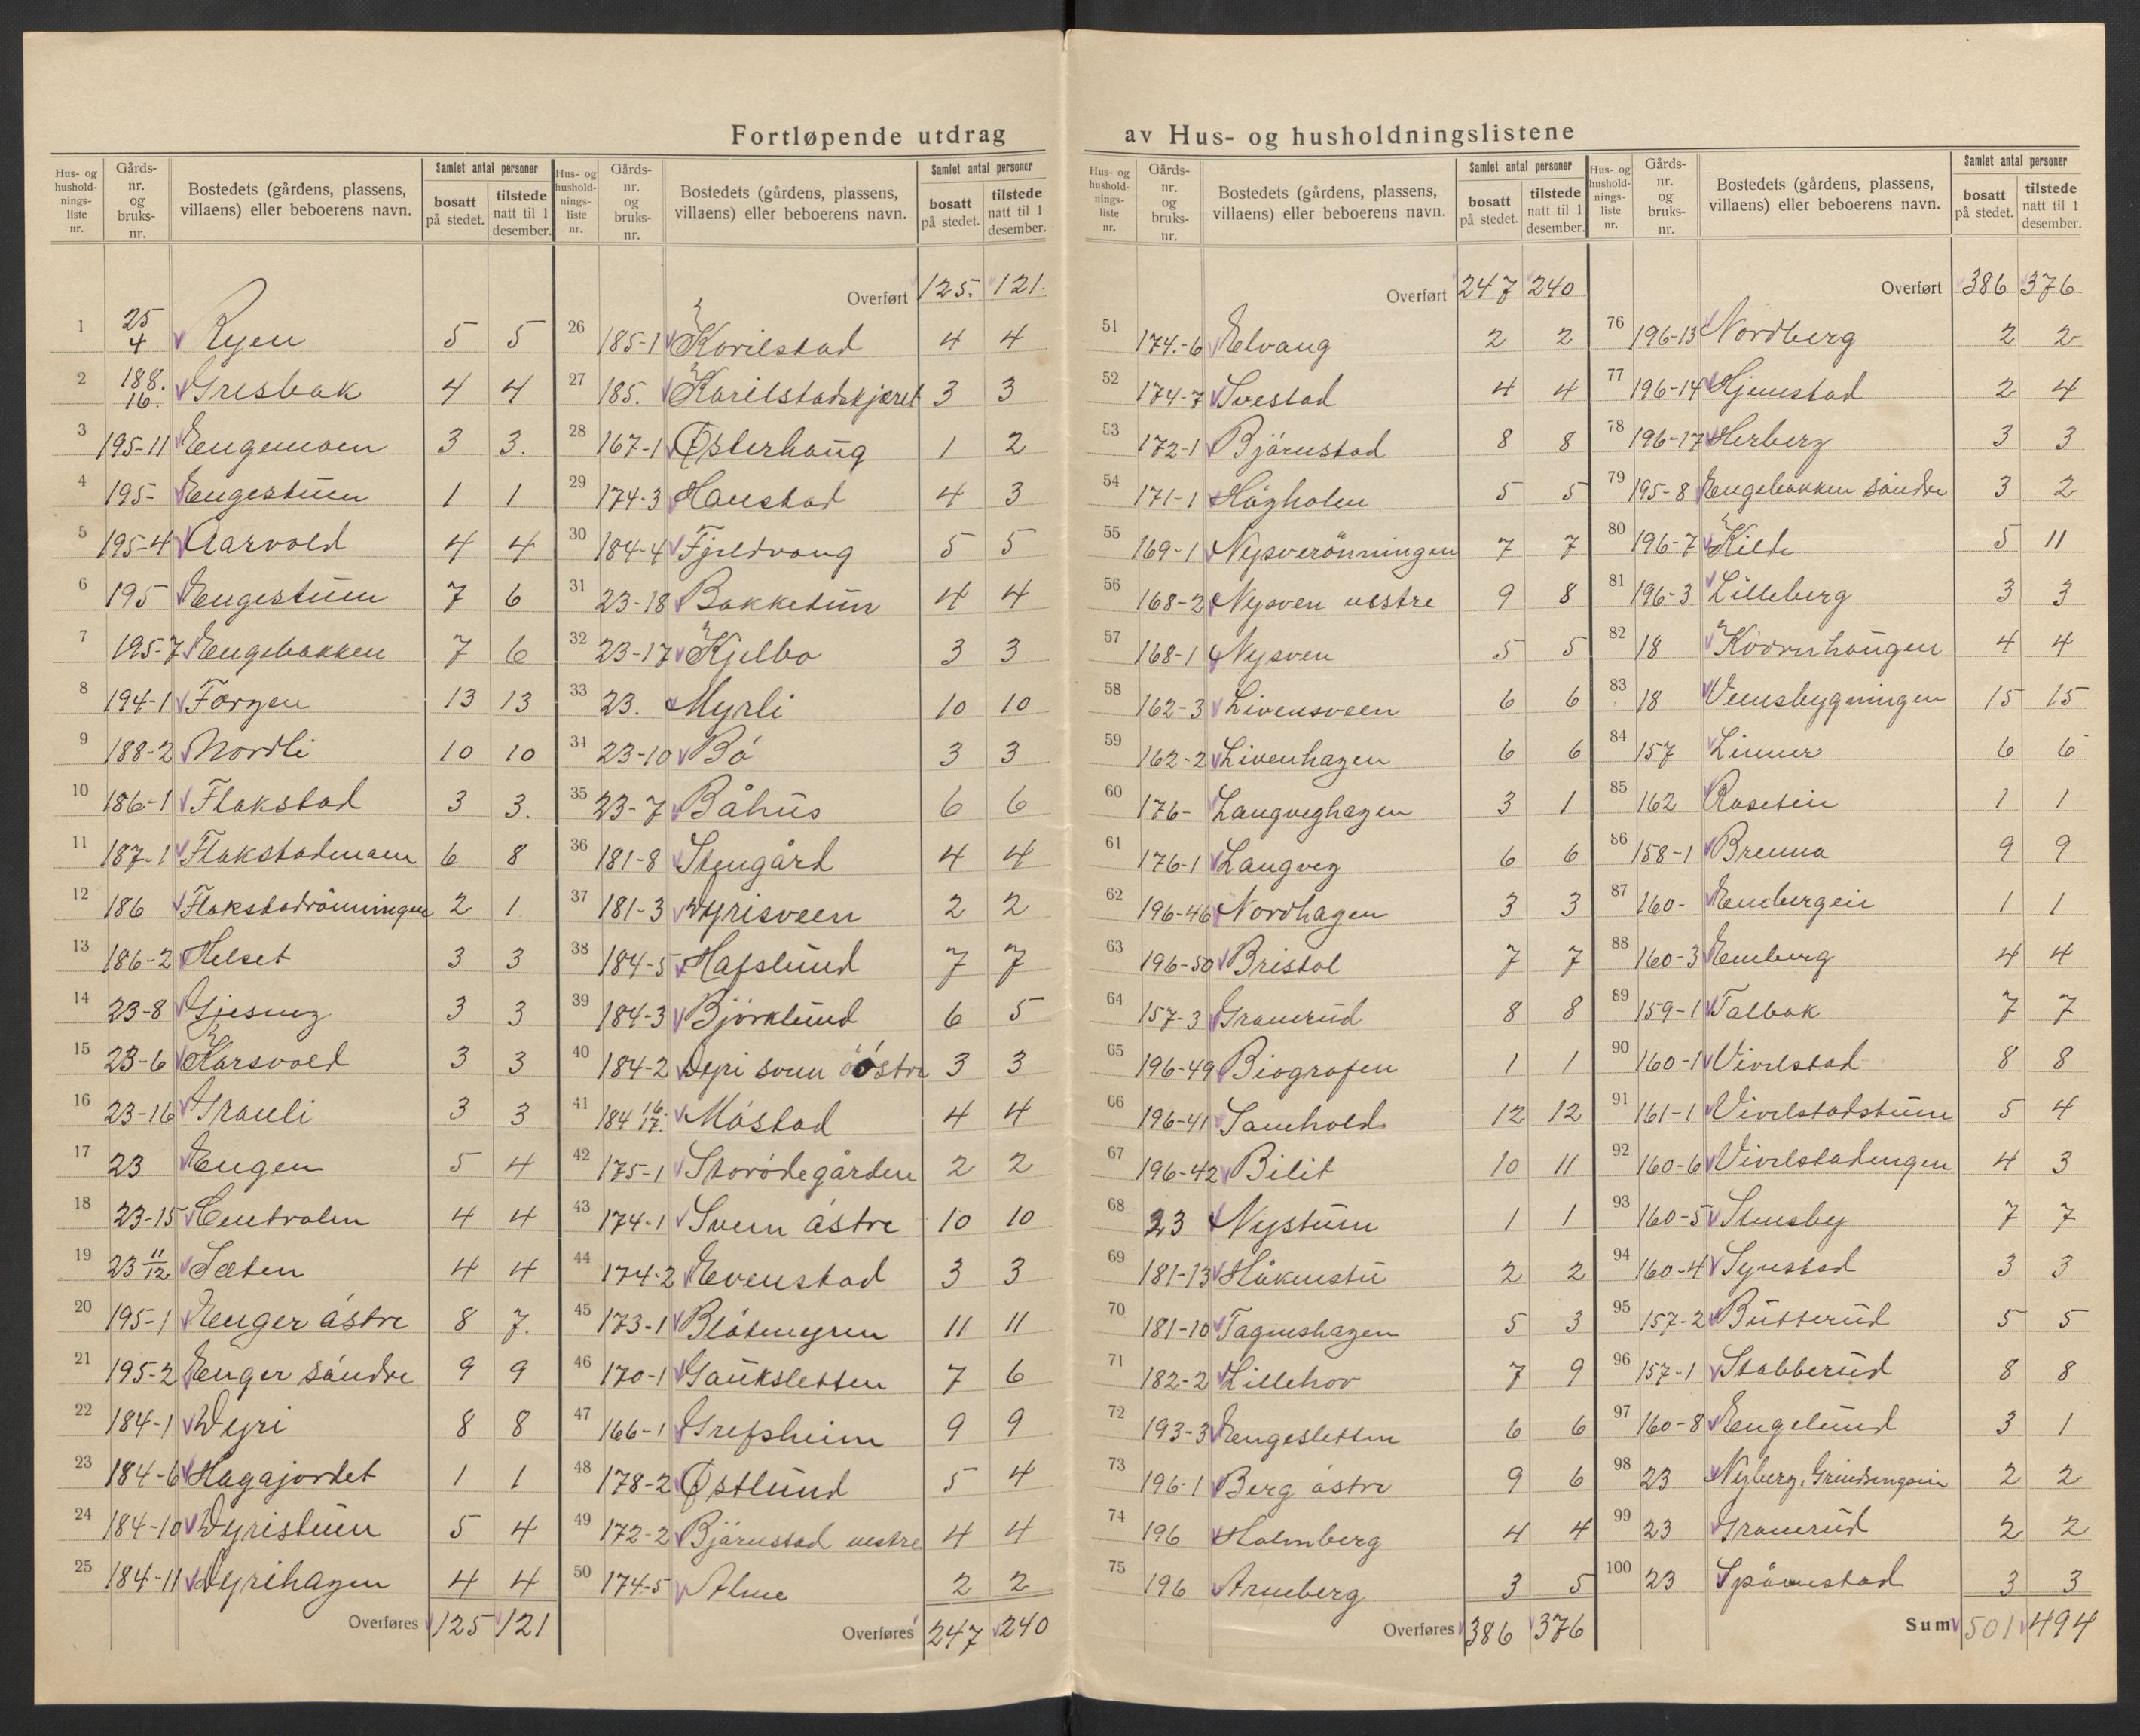 Fortløpende utdrag av Hus- og husholdningslistene
Hus- og husholdningsliste nr. | Gårdsnr. og bruksnr. | Bostedets (gårdens, plassens, villaens) eller beboerens navn. | Samlet antal personer bosatt på stedet. | tilstede natt til 1 desember.
1 25/4 Ryen 5 5
2 188.16. Gresbak 4 4
3 195-11 Engemoen 3 3.
4 195- Engestuen 1 1
5 195-4 Aarvold 4 4
6 195 Engestuen 7 6
7 195-7 Engebakken 7 6
8 194-1 Forgen 13 13
9 188-2 Nordli 10 10
10 186-1 Flakstad 3 3.
11 187-1 Flakstadmoen 6 8
12 186 Flakstadrönningen 2 1
13 186-2 Helset 3 3
14 23-8 3 3
15 23-6 Karsvold 3 3
16 23-16 Granli 3 3
17 23 Engen 5 4
18 23-15 Centralen 4 4
19 23 11/12 Sæten 4 4
20 195-1 Enger östre 8 7.
21 195-2 Enger söndre 9 9
22 184-1 Dyri 8 8
23 184-6 Hagajordet 1 1
24 184-10 Dyristuen 5 4
25 184-11 Dyrihagen 4 4
Overføres 125 121
Hus- og husholdningsliste nr. | Gårdsnr. og bruksnr. | Bostedets (gårdens, plassens, villaens) eller beboerens navn. | Samlet antal personer bosatt på stedet. | tilstede natt til 1 desember.
Overført 125. 121.
26 185-1 Korilstad 4 4
27 185. Karilstadskjæret 3 3
28 167-1 Østerhaug 1 2
29 174-3 Hanstad 4 3
30 184-4 Fjeldvang 5 5
31 23-18 Bakketun 4 4
32 23-17 Kjelbo 3 3
33 23. Myrli 10 10
34 23-10 Bö 3 3
35 23-7 Båhus 6 6
36 181-8 Stengård 4 4
37 181-3 Dyrisveen 2 2
38 184-5 Hafslund 7 7
39 184-3 Björklund 6 5
40 184-2 Dyri sveen östre 3 3
41 184 16/17. Möstad 4 4
42 175-1 Storödegården 2 2
43 174-1 Sveen östre 10 10
44 174-2 Evenstad 3 3
45 173-1 Blötemyren 11 11
46 170-1 Gauksletten 7 6
47 166-1 Grefsheim 9 9
48 178-2 Østlund 5 4
49 172-2 Bjørnstad vestre 4 4
50 174-5 Alme 2 2
Overføres 247 240
Hus- og husholdningsliste nr. | Gårdsnr. og bruksnr. | Bostedets (gårdens, plassens, villaens) eller beboerens navn. | Samlet antal personer bosatt på stedet. | tilstede natt til 1 desember.
Overført 247 240
51 174.-6 Elvang 2 2
52 174-7 Svestad 4 4
53 172-1 Björnstad 8 8
54 171-1 Högholen 5 5
55 169-1 Nysverönningen 7 7
56 168-2 Nysven vestre 9 8
57 168-1 Nysven 5 5
58 162-3 Livensveen 6 6
59 162-2 Livenhagen 6 6
60 176- Langveghagen 3 1
61 176-1 Langveg 6 6
62 196-46 Nordhagen 3 3
63 196-50 Bristol 7 7
64 157-3 Granerud 8 8
65 196-49 Biografen 1 1
66 196-41 Samhold 12 12
67 196-42 Bilit 10 11
68 23 Nystuen 1 1
69 181-13 Håkenstu 2 2
70 181-10 Tagneshagen 5 3
71 182-2 Lillehov 7 9
72 193-3 Engesletten 6 6
73 196-1 Berg östre 9 6
74 196 Holmberg 4 4
75 196 Arneberg 3 5
Overføres 386 376
Hus- og husholdningsliste nr. | Gårdsnr. og bruksnr. | Bostedets (gårdens, plassens, villaens) eller beboerens navn. | Samlet antal personer bosatt på stedet. | tilstede natt til 1 desember.
Overført 386 376
76 196-13 Nordberg 2 2
77 196-14 Hjemstad 2 4
78 196-17 Herberg 3 3
79 195-8 Engebakken söndre 3 2
80 196-7 Kilde 5 11
81 196-3 Lilleberg 3 3
82 18 Kvernhaugen 4 4
83 18 Vemsbygningen 15 15
84 157 Linner 6 6
85 162 1 1
86 158-1 Brenna 9 9
87 160- Embergeie 1 1
88 160-3 Emberg 4 4
89 159-1 Talbak 7 7
90 160-1 Vivelstad 8 8
91 161-1 Vivelstadstuen 5 4
92 160-6 Vivelstadengen 4 3
93 160-5 Stensby 7 7
94 160-4 Synstad 3 3
95 157-2 Butterud 5 5
96 157-1 Stabberud 8 8
97 160-8 Engelund 3 1
98 23 Nyberg, 2 2
99 23 Granerud 2 2
100 23 Spönnstad 3 3
Sum 501 494